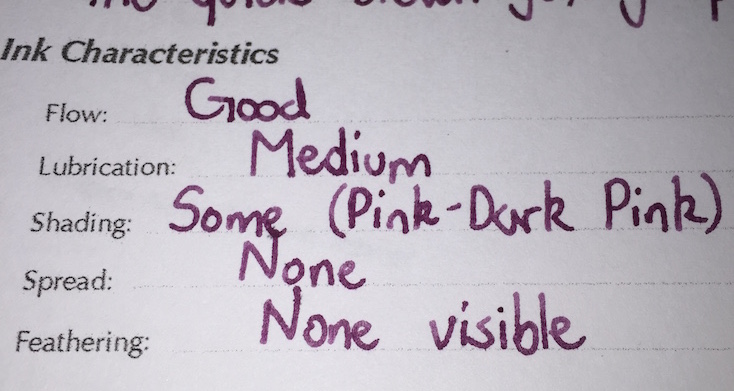 Ink Characteristics
Flow: Good
Lubrication: Medium
Shading: Some (Pink-Dark Pink)
Spread: None
Feathering: None visible